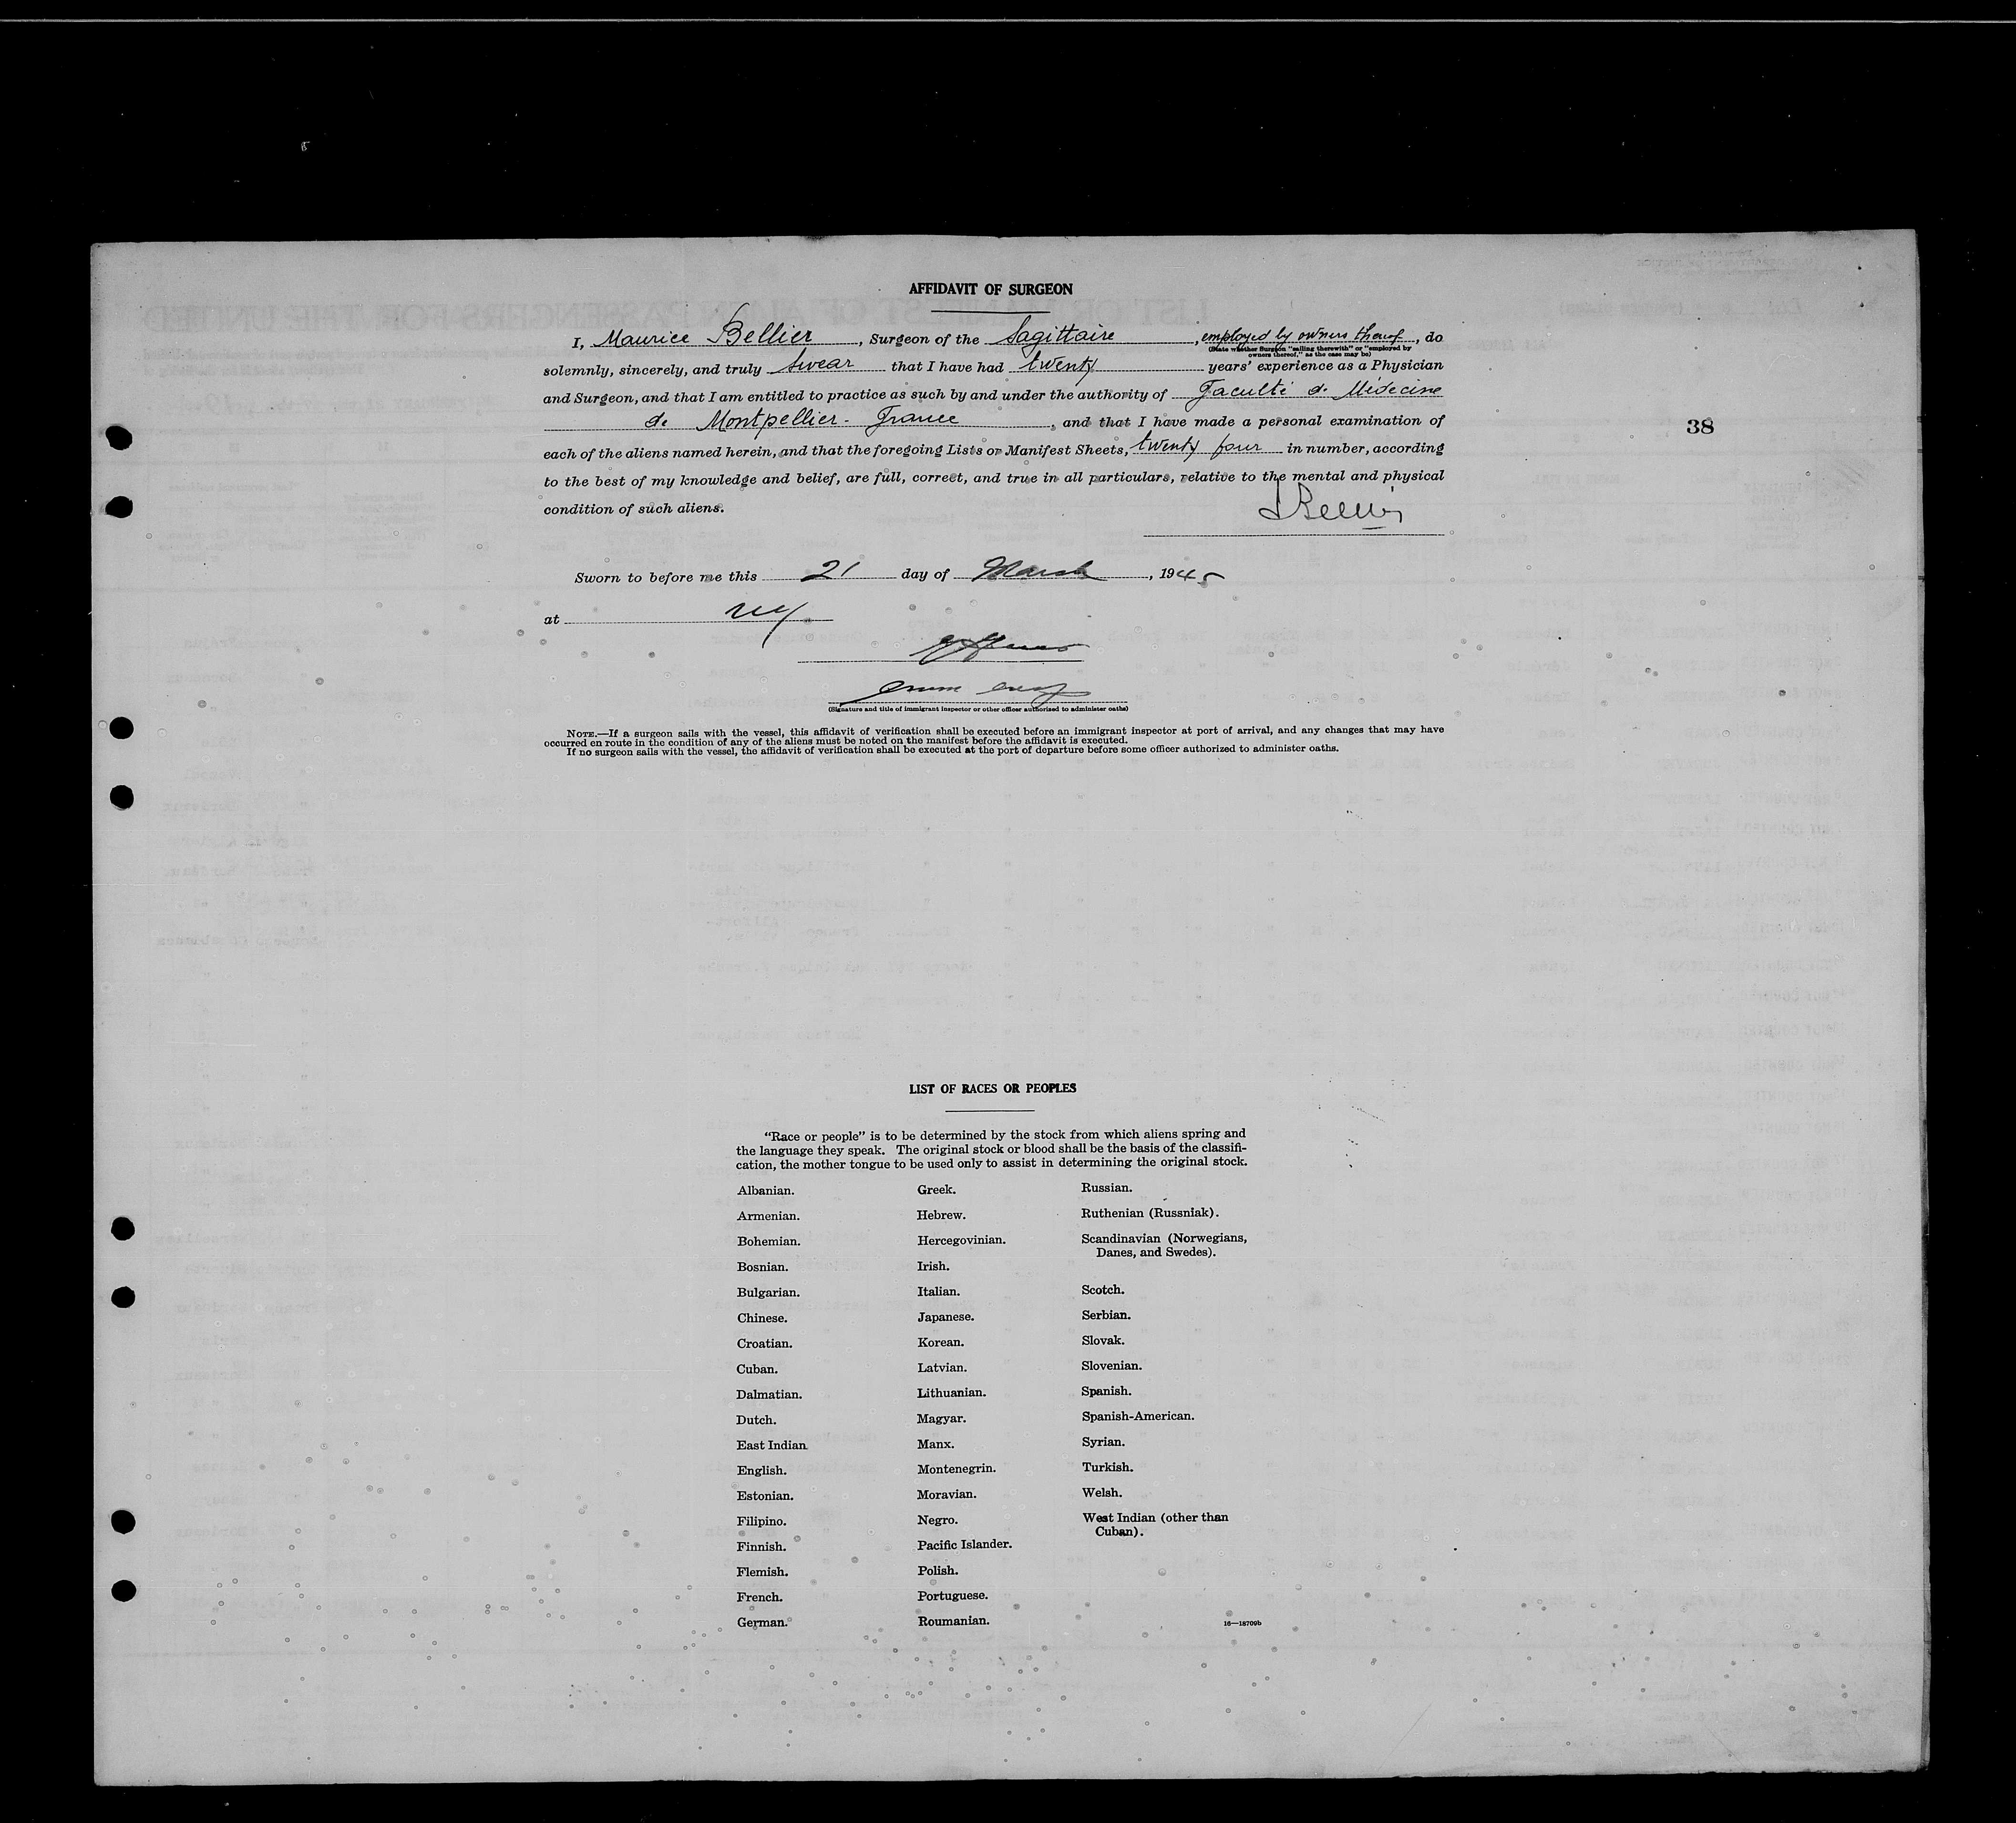 AFFIDAVIT OF SURGEON
I, Maurice Bellier, Surgeon of the Sagittaire, employed by owners thereof, do
(State whether Surgeon "sailing therewith" or "employed by
owners thereof," as the case may be)
solemnly, sincerely, and truly swear that I have had twenty years' experience as a Physician
and Surgeon, and that I am entitled to practice as such by and under the authority of Faculté de Médecine
de Montpellier - France, and that I have made a personal examination of
38
each of the aliens named herein, and that the foregoing Lists or Manifest Sheets, twenty four in number, according
to the best of my knowledge and belief, are full, correct, and true in all particulars, relative to the mental and physical
condition of such aliens.
Bellier
Sworn to before me this 21 day of March, 1945
at NY
(Signature and title of immigrant inspector or other officer authorized to administer oaths)
NOTE.—If a surgeon sails with the vessel, this affidavit of verification shall be executed before an immigrant inspector at port of arrival, and any changes that may have
occurred en route in the condition of any of the aliens must be noted on the manifest before the affidavit is executed.
If no surgeon sails with the vessel, the affidavit of verification shall be executed at the port of departure before some officer authorized to administer oaths.
LIST OF RACES OR PEOPLES
"Race or people" is to be determined by the stock from which aliens spring and
the language they speak. The original stock or blood shall be the basis of the classifi-
cation, the mother tongue to be used only to assist in determining the original stock.
Albanian.
Armenian.
Bohemian.
Bosnian.
Bulgarian.
Chinese.
Croatian.
Cuban.
Dalmatian.
Dutch.
East Indian
English.
Estonian.
Filipino.
Finnish.
Flemish.
French.
German.
Greek.
Hebrew.
Hercegovinian.
Irish.
Italian.
Japanese.
Korean.
Latvian.
Lithuanian.
Magyar.
Manx.
Montenegrin.
Moravian.
Negro.
Pacific Islander.
Polish.
Portuguese.
Roumanian.
Russian.
Ruthenian (Russniak).
Scandinavian (Norwegians,
Danes, and Swedes).
Scotch.
Serbian.
Slovak.
Slovenian.
Spanish.
Spanish-American.
Syrian.
Turkish.
Welsh.
West Indian (other than
Cuban).
16—18709b